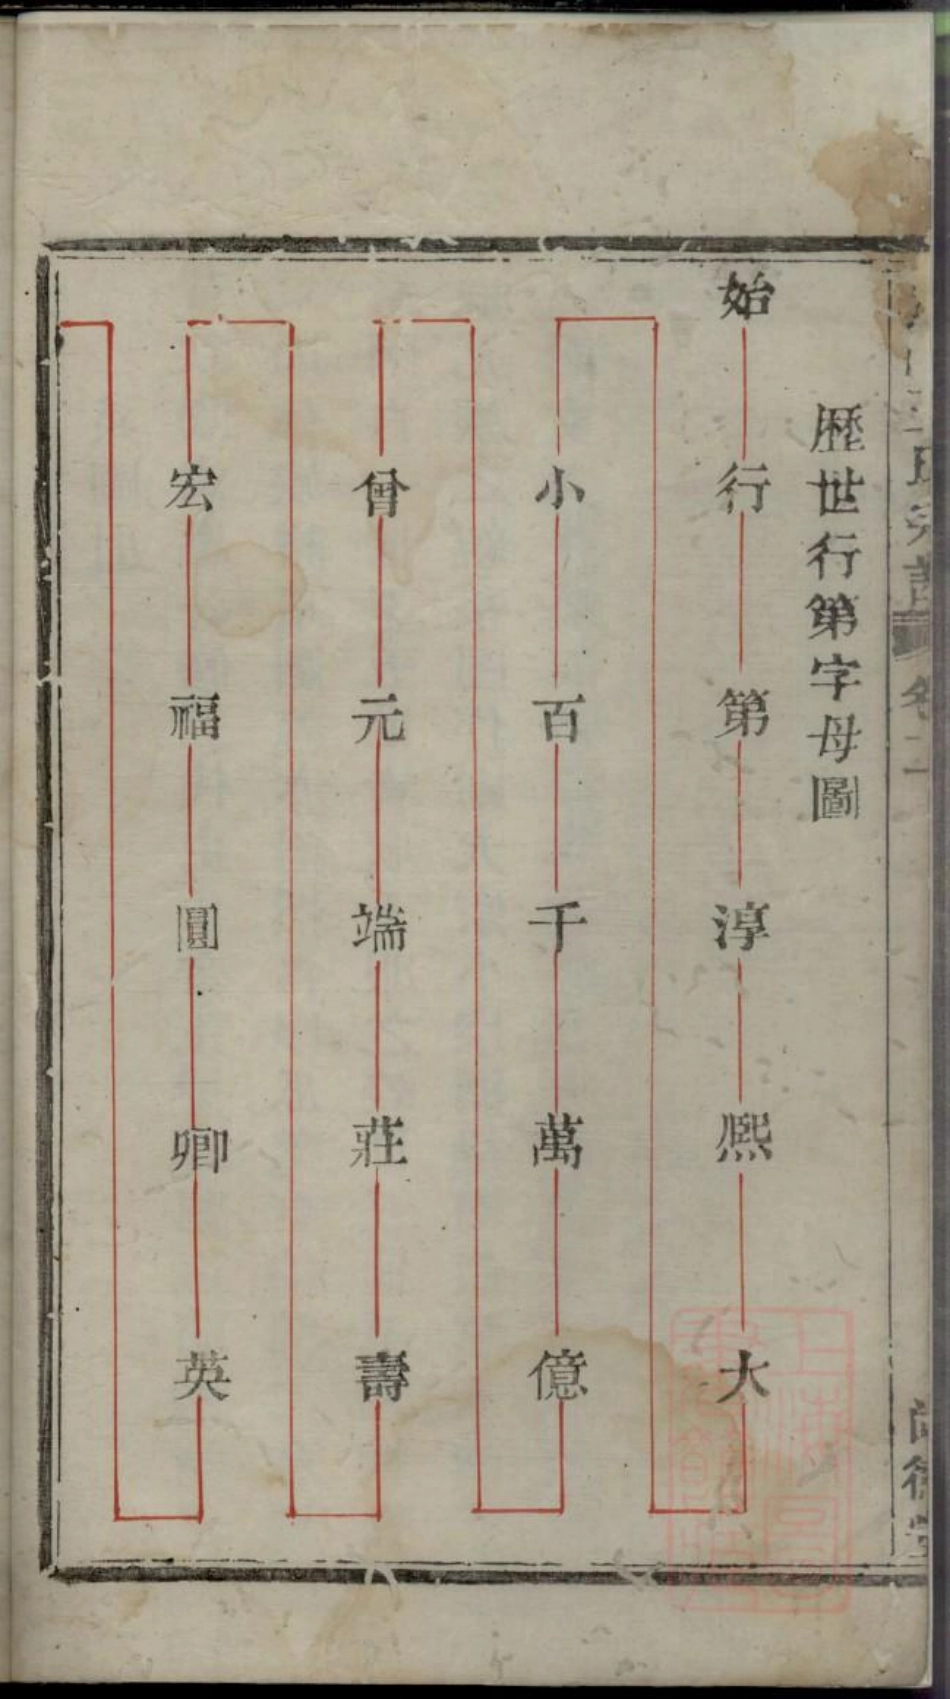 氏宗譜 卷二
歷世行第字母圖
始 行 第 淳 熙 大
小 百 千 萬 億
曾 元 端 莊 壽
宏 福 圓 卿 英